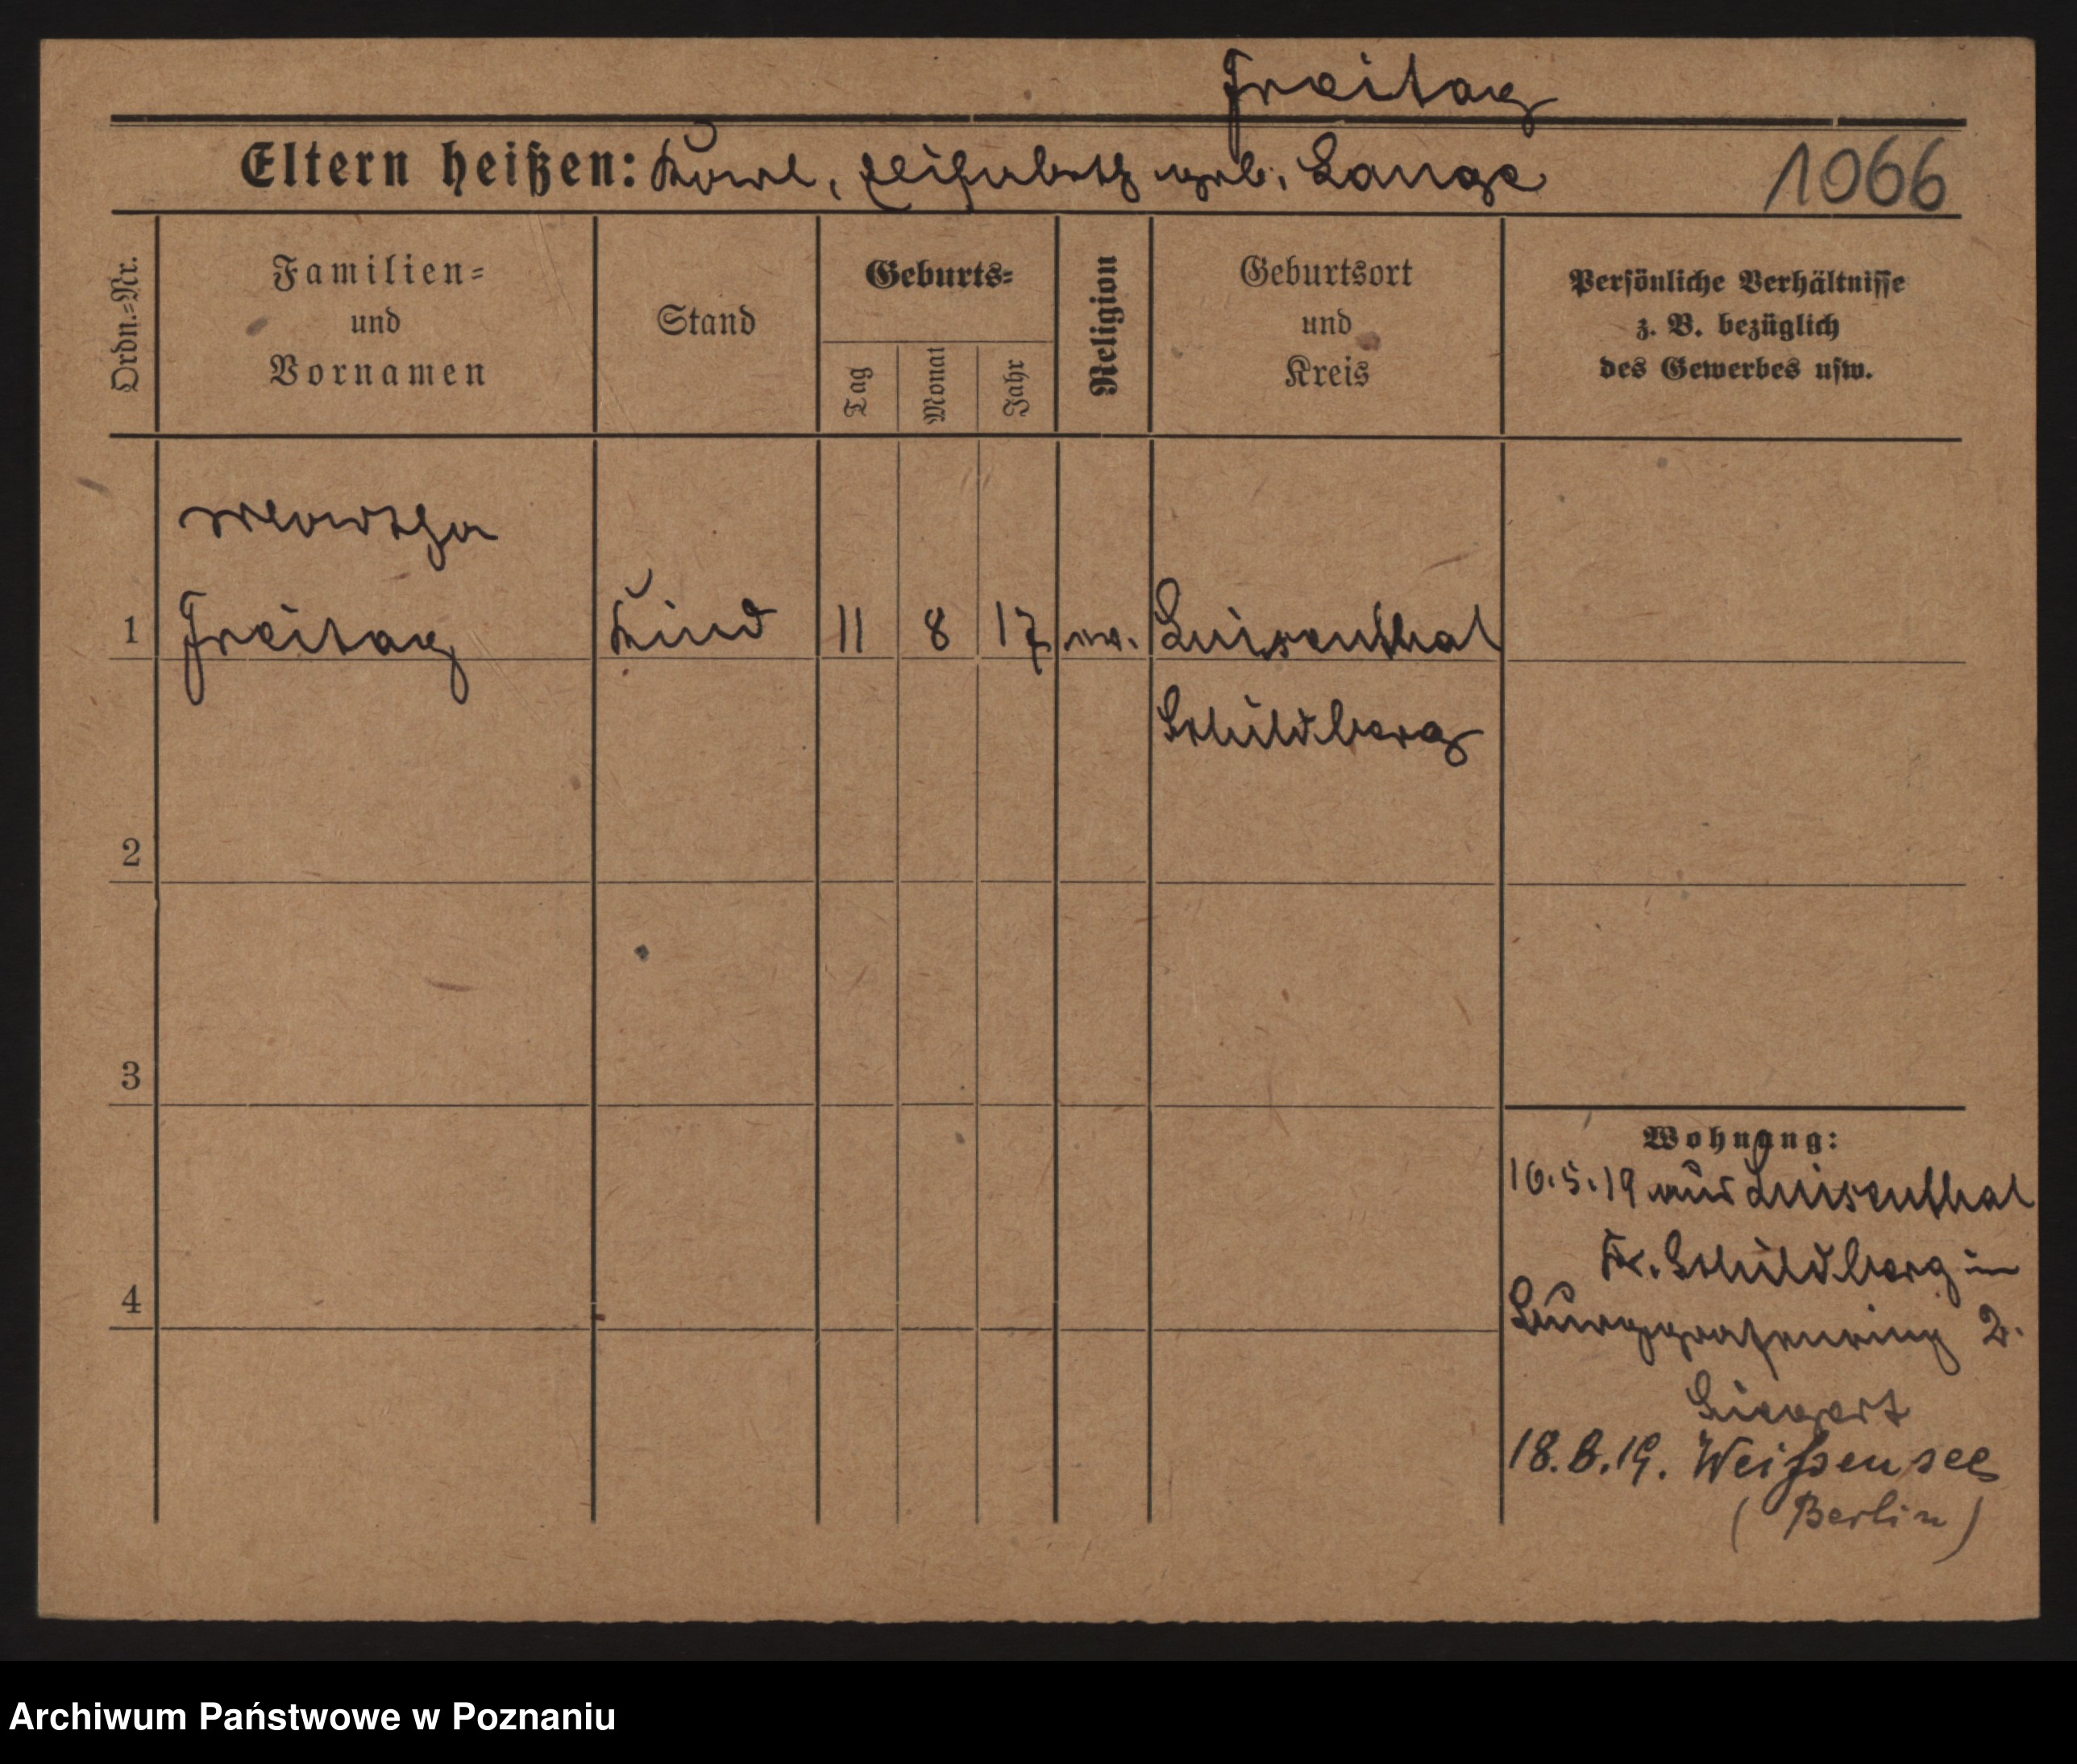 Freitag
Eltern heißen: Karl, Elisabeth geb. Lange
1066
Ordn.=Nr.
Familien=
und
Vornamen
Stand
Geburts=
Tag
Monat
Jahr
Religion
Geburtsort
und
Kreis
Persönliche Verhältnisse
z. B. bezüglich
des Gewerbes usw.
Martha
1 Freitag Kind 11 8 17 ev. Luisenthal
Schildberg
2
3
Wohnung:
10.5.19 aus Luisenthal
Kr. Schildberg in
4
Burggrafenring 2.
18.8.19. Weißensee
(Berlin)
Archiwum Państwowe w Poznaniu